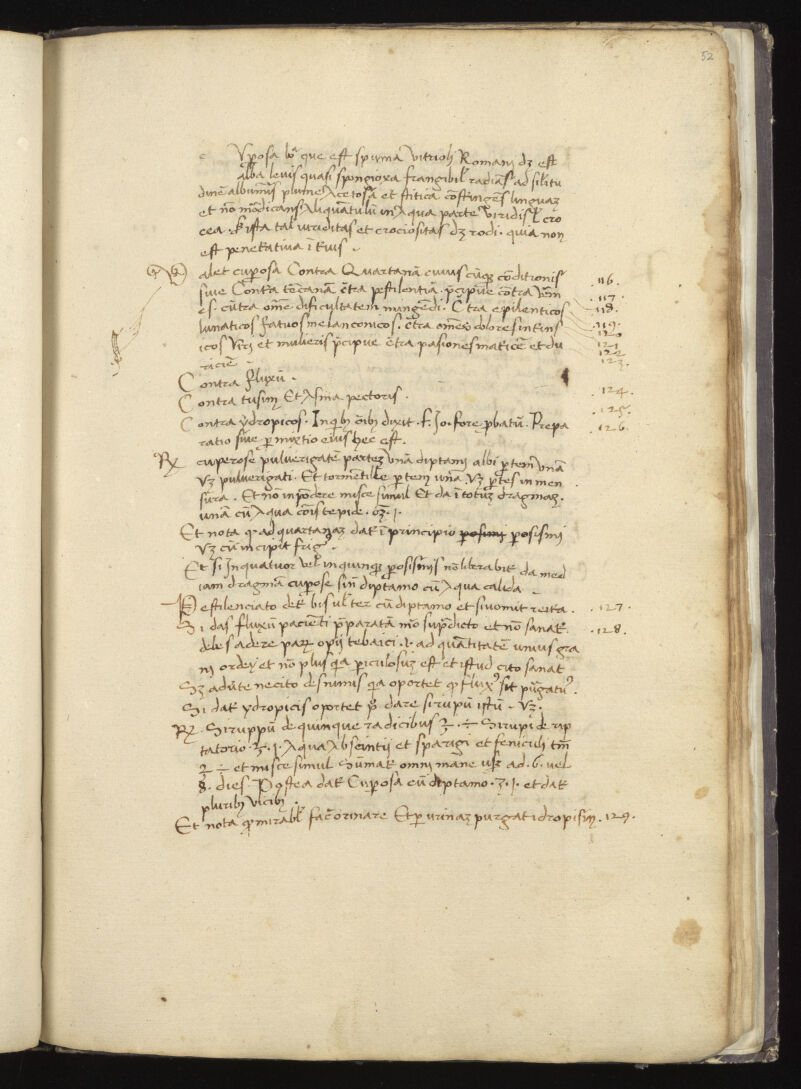 52
c Vposa bo que est spuma vitrioli Romani dz est
alba levis quasi spongioxa frangibil radiās ad silitu
dinē albuminis plume Acetosa et stitica constingēs linguaz
et nō mōdicans Aliquantulū in Aqua parte viridis l cro
cea & ista tal viriditas et crociositas dz rodi · quia non
est penetrativa
Valet cuposa Contra Quartanā cuius cūqz cōditionis 116.
sive Contra terzanā cōtra pestilentiā pcipue cōtra 117.
es. cūtra omē dificultatem mingēdi. Cōtra epilenticos 118.
lunaticos fatuos melanconicos. cōtra omēs dolores intrins 119. 120
icos Viri et mulieris pcipue cōtra pasiones matricē et du 121 122
ricie 123.
Contra fluxū.
Contra tusim Et Asma pectoris. 124.
125.
Contra ydropicos. In qbz oībz dixit. f. Jo. fore pbatū. Prepa 126.
ratio sive pmixtio eius hec est.
Rx cuperose pulverigate partez unā diptami albi ptem unā
Vz pulverigati. Et tormētille ptem unā Vz ptes in men
sura. Et nō in pōdere misce simul Et da ī totuz dragmaz.
unā cū Aqua cōis tepide. oz. i.
Et nota q ad quartanaz dat ī principio posimi posisimi
Vz cū incipit frig.
Et si In quatuor vel in quinqz posismis nō liberabit da med
iam dragmā cupose sin diptamo cū Aqua calida.
Pestilenciato det bis vl ter cū diptamo et si vomit reita. 127.
Si das fluxū pacienti pparatā mo supdicto et nō sanat 128.
debes adere parz opij tebaici. i. ad quātitatē unius gra
ni ordey et nō plus qa piculosuz est et istud cito sanat
Sz adute ne cito des nimis qa oportet q flux sit pugatu.
Si dat ydropicis oportet p dare sirupū istū. Vz.
Rx. Siruppū de quinque radicibus Sirupi de rep
tatorio ʒ. i. Aqua Abseintij et sparigi et feniculi
et misce simul Sumat omni mane usqz ad. 6. vel
8. dies. Postea dat Cuposa cū diptamo. ʒ. i. et dat
pluribz vicibz.
Et nota q mirabl fac orinare Et p urinaz purgat idropisim. 129.